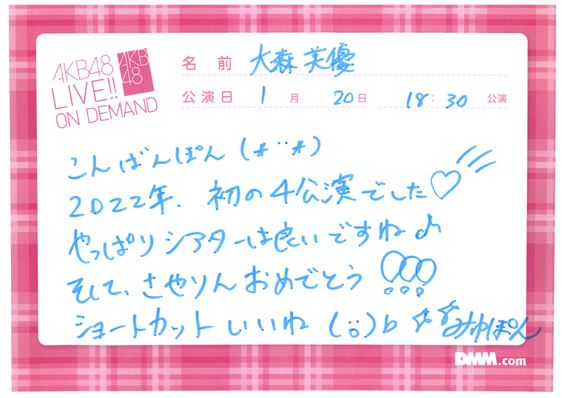 AKB48
LIVE!!
ON DEMAND
AKB
48
名 前 大森美優
公演日 1月 20日 18:30 公演
こんばんぽん (*¨*)
2022年、初の4公演でした♡
やっぱりシアターは良いですね♪
そして、さやりんおめでとう!!!
ショートカットいいね (¨)b ☆☆みゆぽん
DMM.com